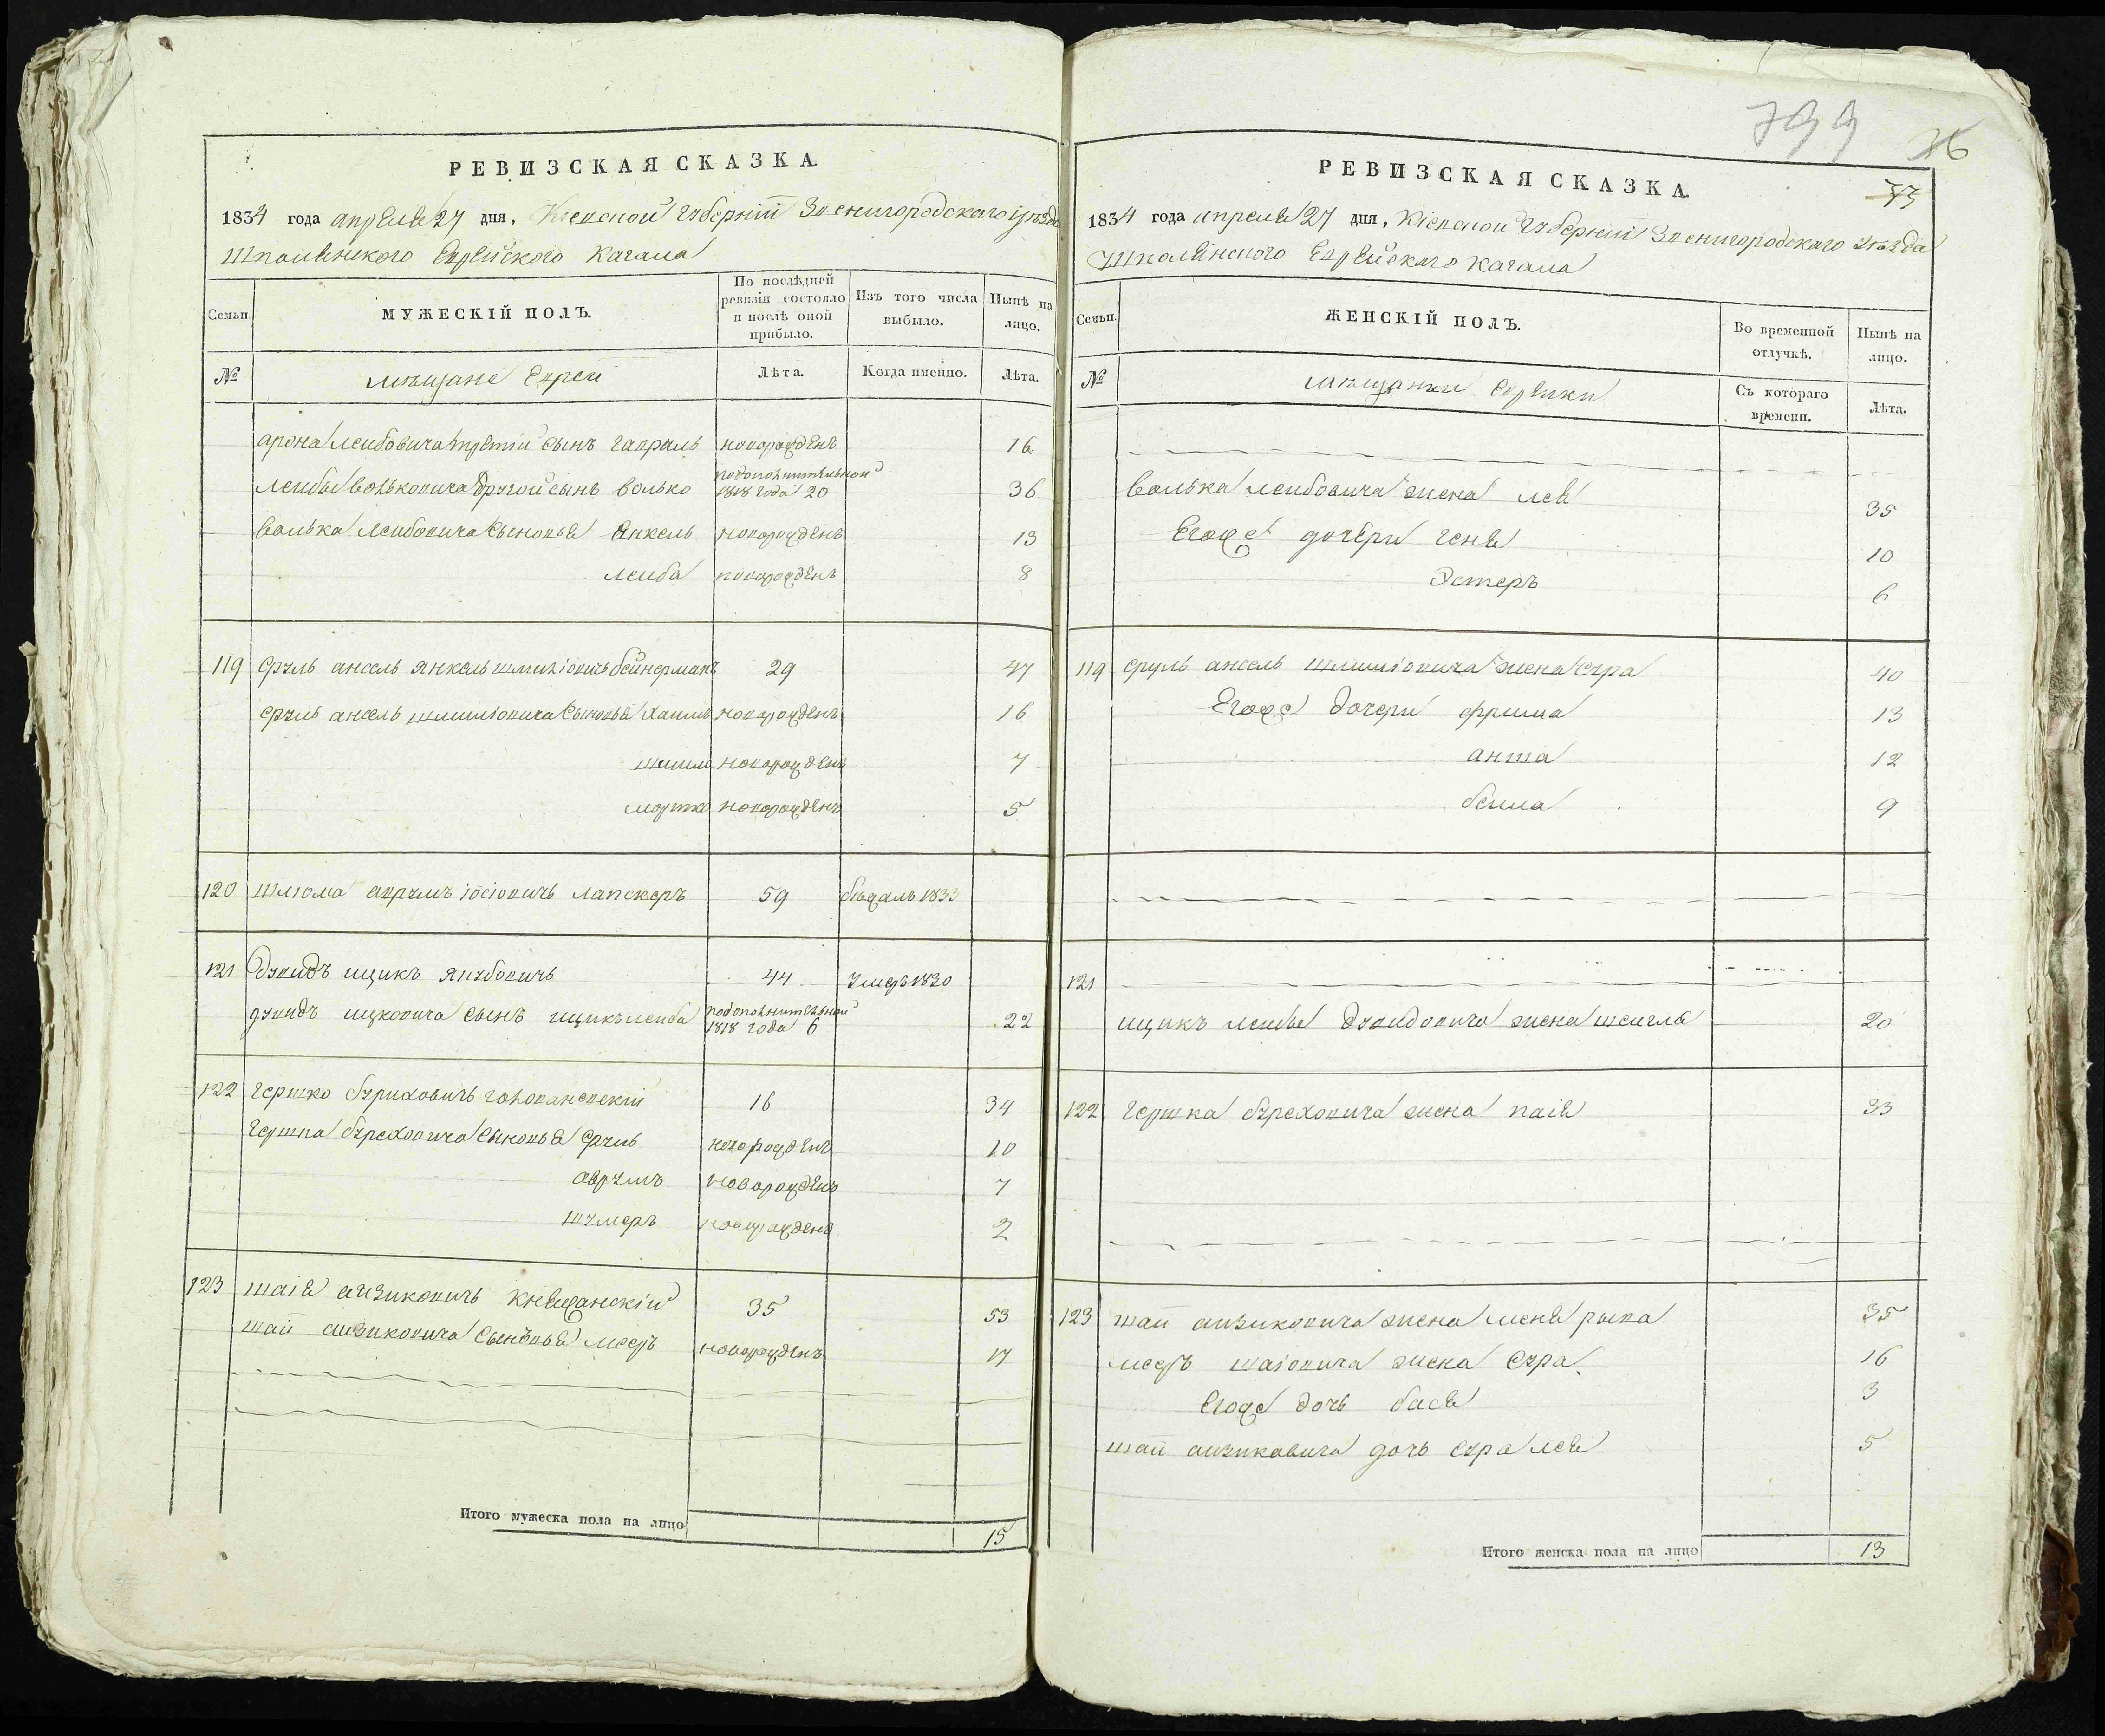 РЕВИЗСКАЯ СКАЗКА
1834 года апреля 27 дня, Кіевской губерніи Звенигородского уѣзда
Шполянского Еврейского Кагала
Семьи.
МУЖЕСКІЙ ПОЛЪ.
По послѣдней ревизіи состояло и послѣ оной прибыло.
Изъ того числа выбыло.
Нынѣ на лицо.
№
мѣщане Евреи
Лѣта.
Когда именно.
Лѣта.
арона лейбовича третій сынъ гавраль новорожденъ 16
лейбы волковича другой сынъ волько по дополнительной 1818 года 20 36
волька лейбовича сыновья янкель новорожденъ 13
лейба новорожденъ 8
119 сруль ансель янкель шмиліовичъ бейнерманъ 29 47
сруль ансель шмиліовича сыновья хаимъ новорожденъ 16
новорожденъ 7
мортко новорожденъ 5
120 шлиома аврумъ іосіовичъ лапскеръ 59 бѣжалъ 1833
121 дувидъ ицикъ янубовичъ 44 умеръ 1830
дувидъ ицковича сынъ ицикъ лейба по дополнительной 1818 года 6 22
122 гершко буриховичъ головансвскій 16 34
гершка бурековича сыновья сруль новорожденъ 10
аврумъ новорожденъ 7
шумеръ новорожденъ 2
123 шаія аизиковичъ княжанскій 35 53
шаи аизиковича сыновья мееръ новорожденъ 17
Итого мужеска пола на лицо 15
799
26
73
РЕВИЗСКАЯ СКАЗКА
1834 года апреля 27 дня, Кіевской губерніи Звенигородского уѣзда
Шполянского Еврейского кагала
Семьи.
ЖЕНСКІЙ ПОЛЪ.
Во временной отлучкѣ.
Нынѣ на лицо.
№
мѣщанки еврейки
Съ котораго времени.
Лѣта.
волька лейбовича жена лея 35
Егожъ дочери геня 10
Эстеръ 6
119 сруль ансель шмиліовича жена сура 40
Егожъ дочери фрима 13
анта 12
бейла 9
121
ицикъ лейбы дувидовича жена шейгля 20
122 гершка бурековича жена паія 33
123 шаи аизиковича жена меня рыва 35
мееръ шаіовича жена сура 16
Егожъ дочь бася 3
шаи аизикавича дочь сура лея 5
Итого женска пола на лицо 13